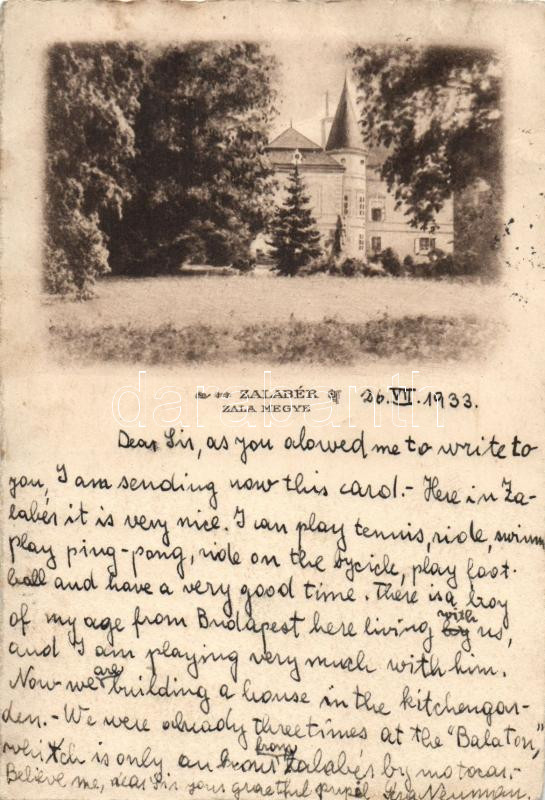 ZALABÉR
ZALA MEGYE
26. VII. 1933.
Dear Sir, as you alowed me to write to
you, I am sending now this card.- Here in Za-
labér it is very nice. I can play tennis, ride, swimm
play ping-pong, ride on the bycicle, play foot-
ball and have a very good time. There is a boy
of my age from Budapest here living with us,
and I am playing very much with him.
Now we are building a house in the kitchengar-
den.- We were already three times at the "Balaton",
whitch is only an hour from Zalabér by motorcar.-
Believe me, dear Sir your grateful pupil Neuman.
darabanth